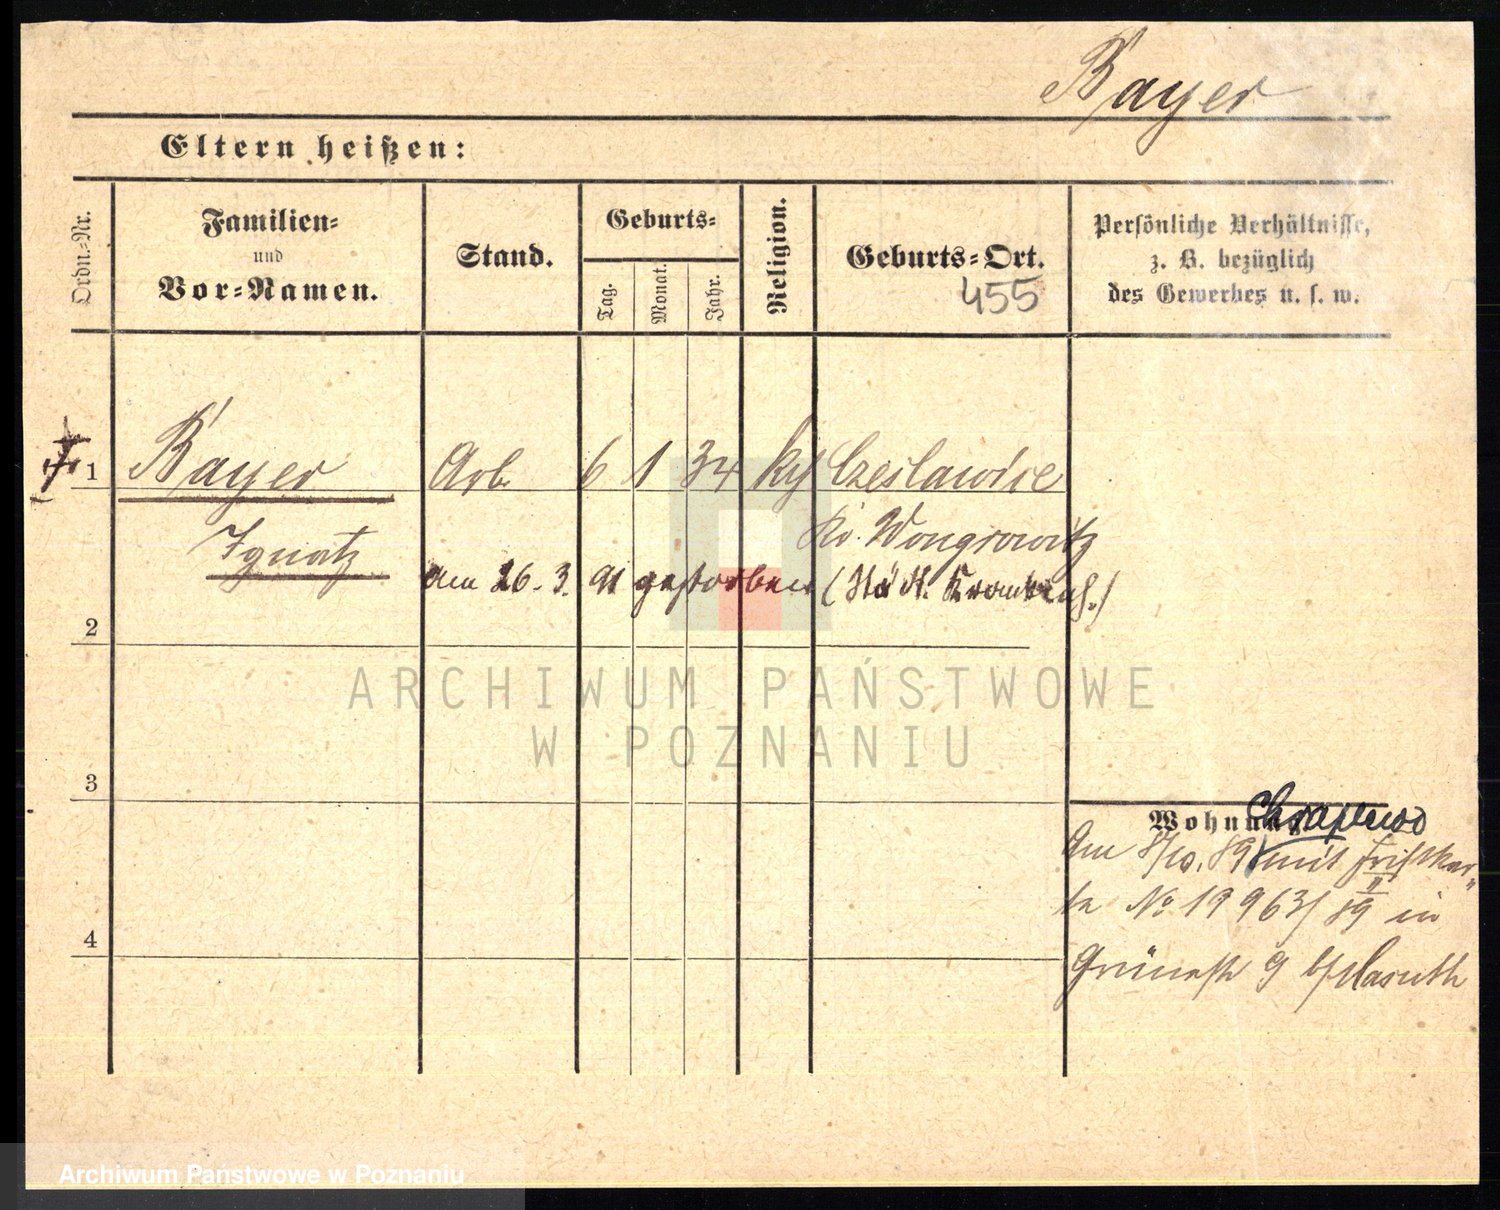 Bayer
Eltern heißen:
Ordn.-Nr.
Familien-
und
Vor-Namen.
Stand.
Geburts-
Tag.
Monat.
Jahr.
Religion.
Geburts-Ort.
455
Persönliche Verhältnisse,
z. B. bezüglich
des Gewerbes u. s. w.
1 Bayer Arb. 6 1 34 kth Czeslawice
Kr. Wongrowitz
Ignatz
am 26. 3. 91 gestorben (Städt. Krankenh.)
2
3
4
Wohnung Chrapewo
Am 8/10. 89 mit Fristkar-
te No 19963/89 in
Grünestr 9 b/
ARCHIWUM PAŃSTWOWE
W POZNANIU
Archiwum Państwowe w Poznaniu